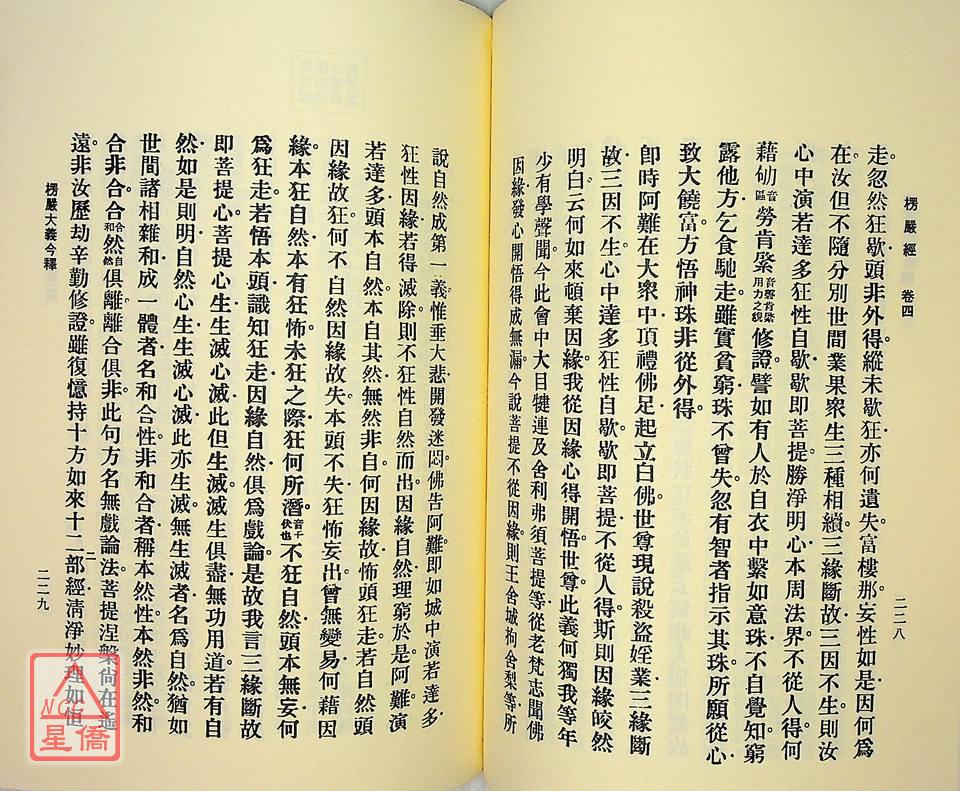 楞嚴經 卷四
二二八
走。忽然狂歇。頭非外得。縱未歇狂。亦何遺失。富樓那。妄性如是。因何為
在。汝但不隨分別世間業果眾生三種相續。三緣斷故。三因不生。則汝
心中演若達多狂性自歇。歇即菩提。勝淨明心。本周法界。不從人得。何
藉劬音區勞肯綮音啓肯綮用力之貌修證。譬如有人於自衣中繫如意珠。不自覺知。窮
露他方。乞食馳走。雖實貧窮。珠不曾失。忽有智者指示其珠。所願從心。
致大饒富。方悟神珠非從外得。
即時阿難在大眾中。頂禮佛足。起立白佛。世尊現說殺盜婬業。三緣斷
故。三因不生。心中達多狂性自歇。歇即菩提。不從人得。斯則因緣皎然
明白。云何如來頓棄因緣。我從因緣心得開悟。世尊。此義何獨我等年
少有學聲聞。今此會中大目犍連及舍利弗須菩提等。從老梵志聞佛
因緣。發心開悟。得成無漏。今說菩提不從因緣。則王舍城拘舍梨等所
說自然。成第一義。惟垂大悲。開發迷悶。佛告阿難。即如城中演若達多。
狂性因緣。若得滅除。則不狂性自然而出。因緣自然。理窮於是。阿難。演
若達多頭本自然。本自其然。無然非自。何因緣故。怖頭狂走。若自然頭
因緣故狂。何不自然因緣故失。本頭不失。狂怖妄出。曾無變易。何藉因
緣。本狂自然。本有狂怖。未狂之際。狂何所潛音干伏也。不狂自然。頭本無妄。何
為狂走。若悟本頭。識知狂走。因緣自然。俱為戲論。是故我言三緣斷故
即菩提心。菩提心生。生滅心滅。此但生滅。滅生俱盡。無功用道。若有自
然。如是則明自然心生。生滅心滅。此亦生滅。無生滅者。名為自然。猶如
世間諸相雜和成一體者。名和合性。非和合者。稱本然性。本然非然。和
合非合。合和合然自然俱離。離合俱非。此句方名無戲論法。菩提涅槃尚在遙
遠。非汝歷劫辛勤修證。雖復憶持十方如來十二部經。清淨妙理如恒
楞嚴大義今釋
二二九
NCC
星僑